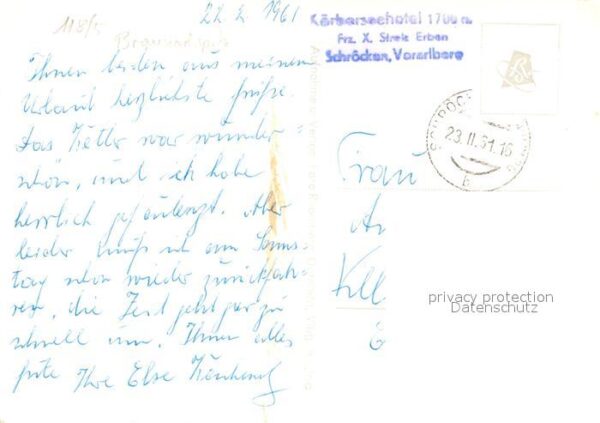 118/5
22.2.1961
Ihnen beiden aus meinem
Urlaub herzlichste Grüße.
Das Wetter war wunder-
schön, und ich habe
herrlich gefaulenzt. Aber
leider muß ich am Sams-
tag schon wieder zurückfah-
ren, die Zeit geht gar zu
schnell um. Ihnen alles
gute Ihre Else
Körberseehotel 1700 m.
Frz. X. Strele Erben
Schröcken, Vorarlberg
23.II.61.16
b
Frau
privacy protection
Datenschutz